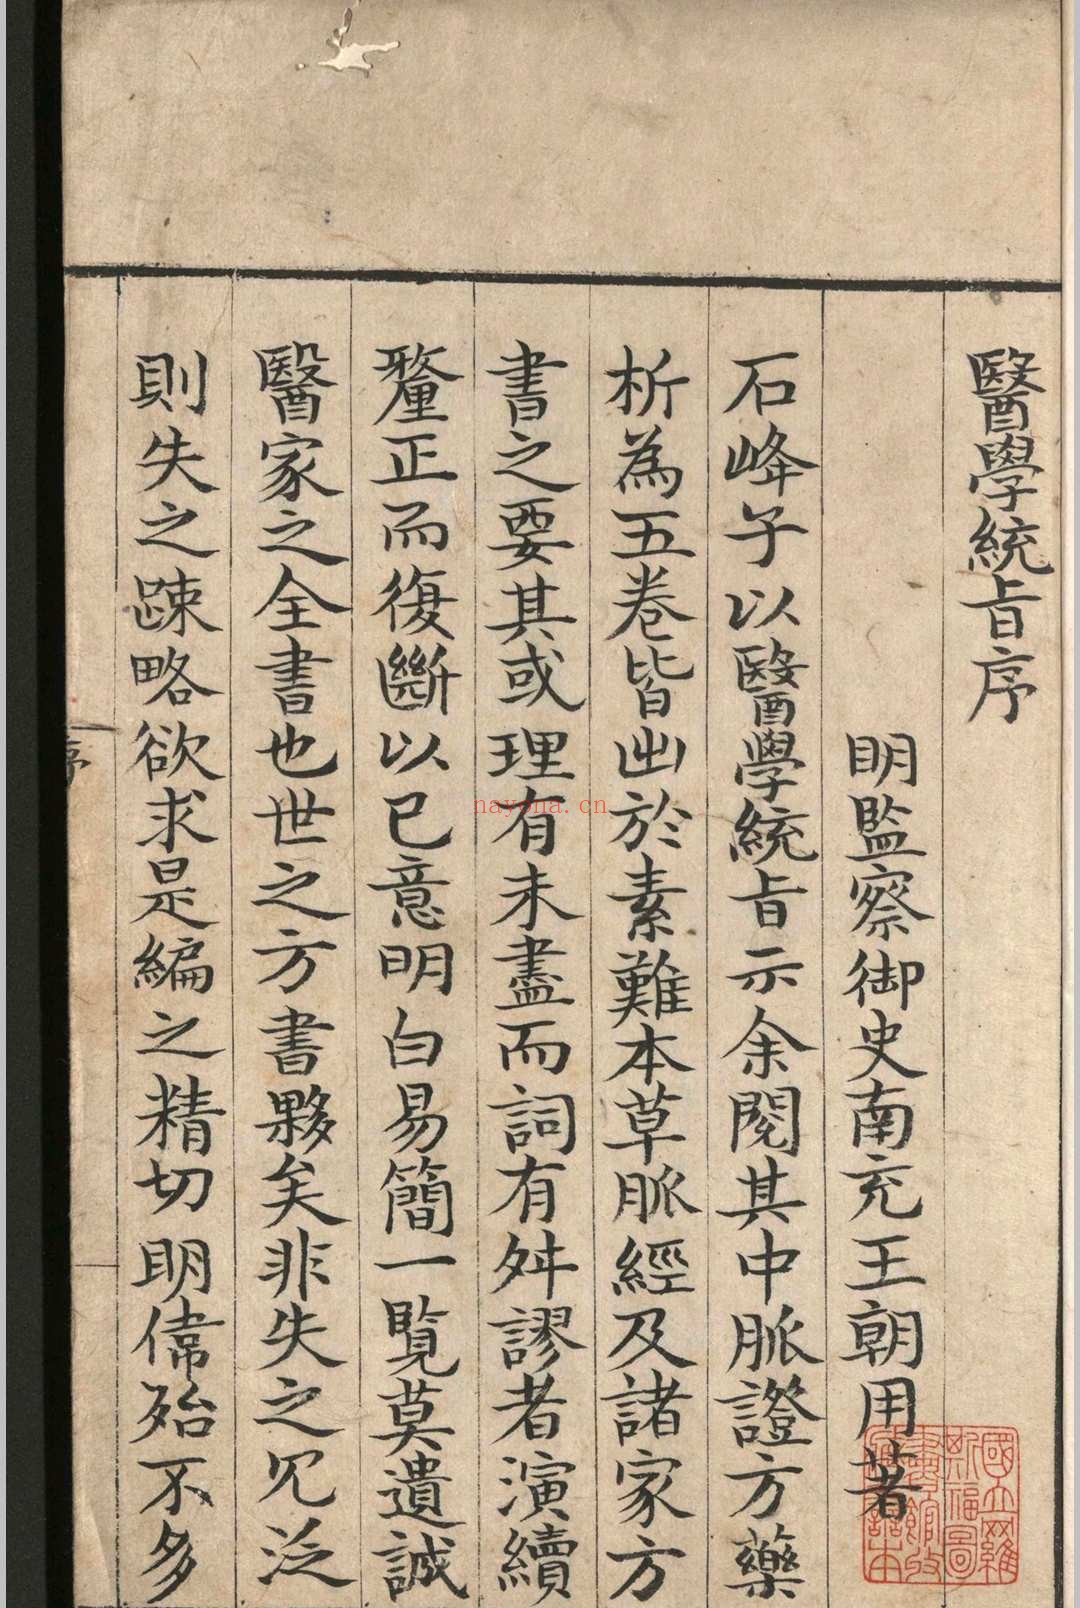 醫學統旨序
明監察御史南充王朝用著
石峰子以醫學統旨示余閱其中脈證方藥
析為五卷皆出於素難本草脈經及諸家方
書之要其或理有未盡而詞有舛謬者演續
釐正而復斷以已意明白易簡一覧莫遺誠
醫家之全書也世之方書夥矣非失之冗泛
則失之踈略欲求是編之精切明偹殆不多
序
nayona.cn